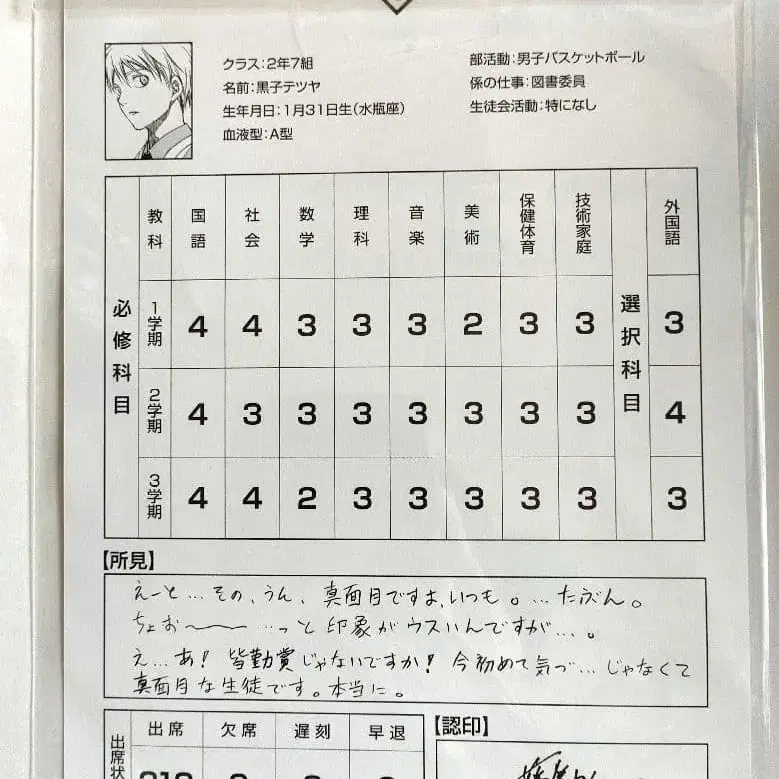 クラス:2年7組
名前:黒子テツヤ
生年月日:1月31日生(水瓶座)
血液型:A型
部活動:男子バスケットボール
係の仕事:図書委員
生徒会活動:特になし
必修科目 教科 国語 社会 数学 理科 音楽 美術 保健体育 技術家庭 選択科目 外国語
1学期 4 4 3 3 3 2 3 3 3
2学期 4 3 3 3 3 3 3 3 4
3学期 4 4 2 3 3 3 3 3 3
【所見】
えーと…その、うん、真面目ですよ、いつも。…たぶん。
ちょお〜〜 …っと印象がウスいんですが…。
え…あ!皆勤賞じゃないですか!今初めて気づ…じゃなくて
真面目な生徒です。本当に。
出席状 出席 欠席 遅刻 早退
【認印】